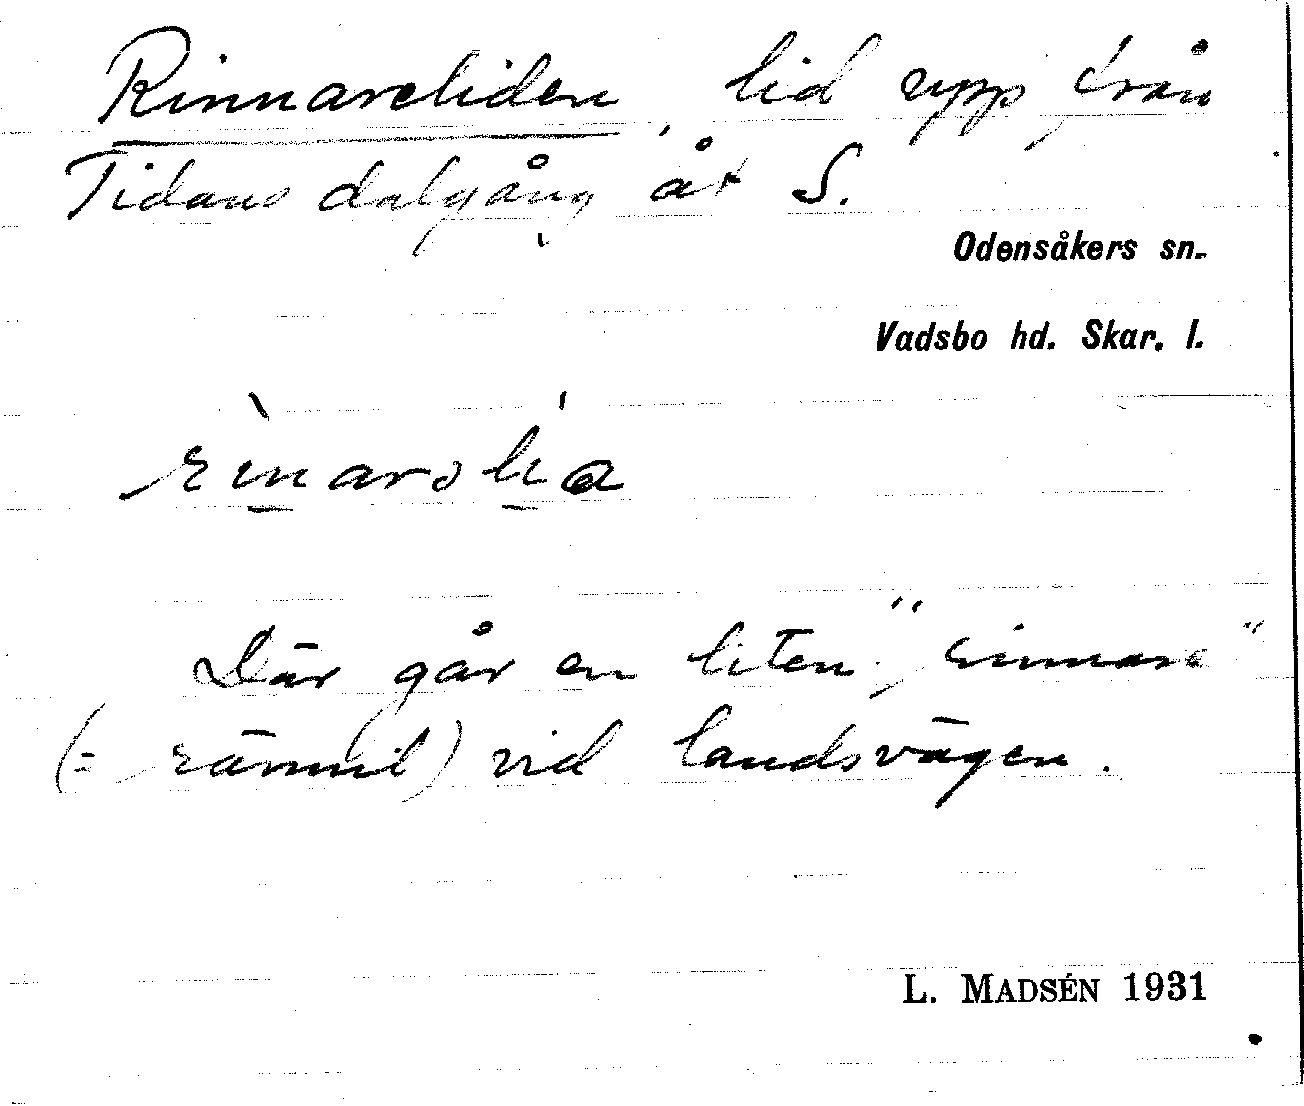 Rinnareliden, lid upp från
Tidans dalgång åt S.
Odensåkers sn.
Vadsbo hd. Skar. l.
Där går en liten „rinnare”
(= rännil) vid landsvägen.
L. MADSÉN 1931